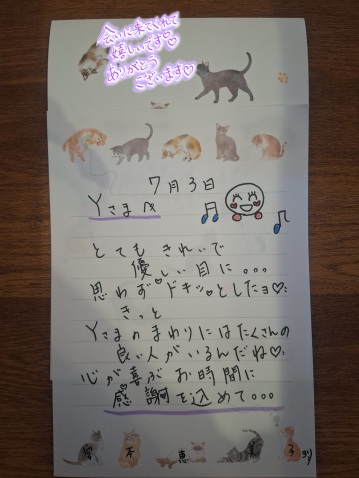 会いに来てくれて
嬉しいです♡
ありがとう
ございます♡
7月3日
Yさまへ
とても きれいで
優しい目に。。。
思わず ドキッ♡としたョ♡
きっと
Yさまのまわりにはたくさんの
良い人がいるんだね♡
心が喜ぶお時間に
感謝を込めて。。。
宮本恵美子より